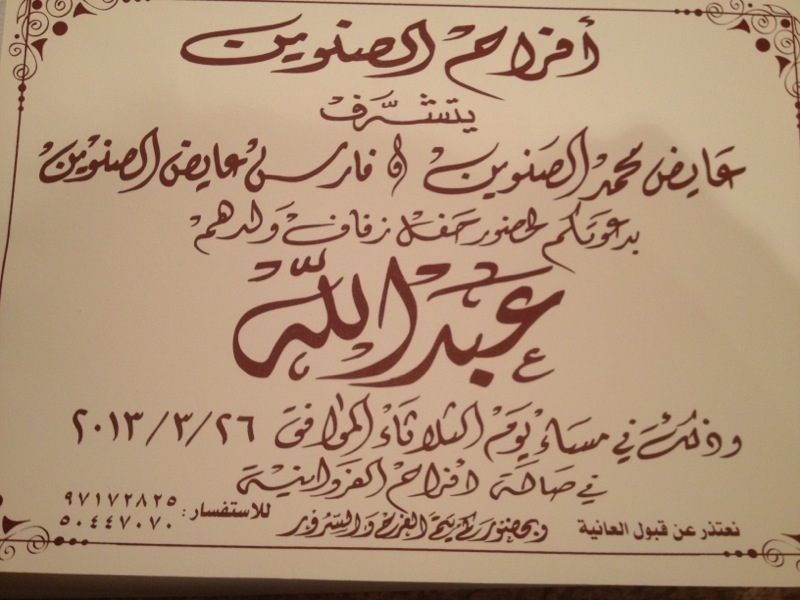 أفراح الصنوين
يتشرف
عايض محمد الصنوين و فارس عايض الصنوين
بدعوتكم لحضور حفل زفاف ولدهم
عبدالله
وذلك في مساء يوم الثلاثاء الموافق ٢٠١٣/٣/٢٦
في صالة افراح الفروانية
نعتذر عن قبول العانية
وبحضوركم يتم الفرح والسرور
للاستفسار : ٩٧١٧٢٨٢٥
٥٠٤٤٧٠٧٠